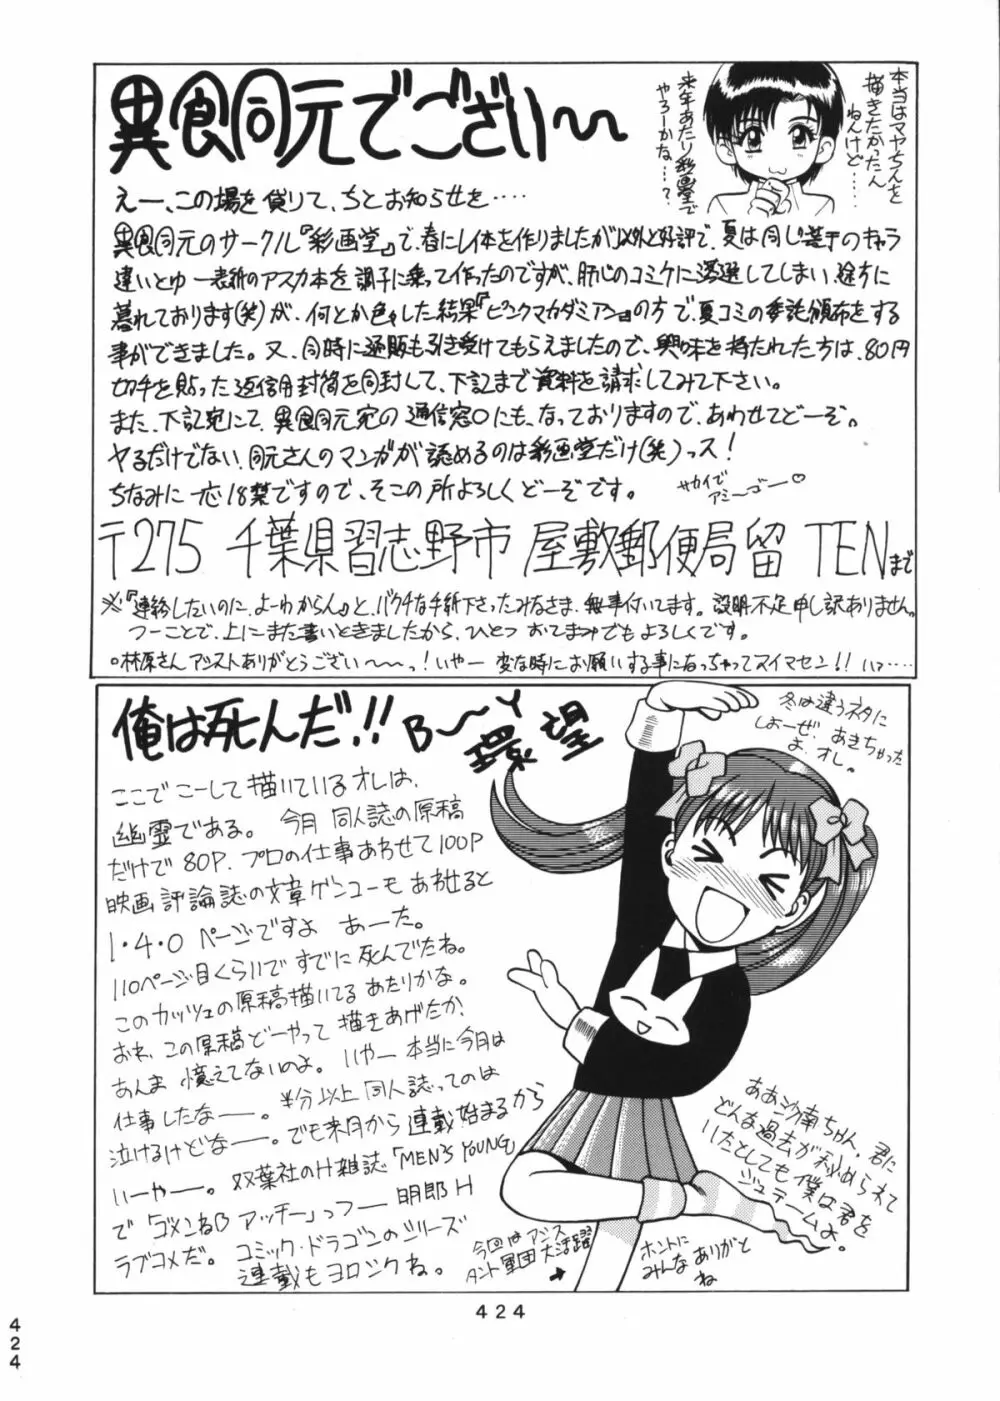 異食同元でござい〜〜
本当はマヤちゃんを
描きたかったん
ねんけど……
来年あたり彩画堂で
やろーかな…?
えー、この場を貸りて、ちとお知らせを‥‥
異食同元のサークル『彩画堂』で、春にレイ本を作りましたが以外と好評で、夏は同じ基子のキャラ
違いとゆー表紙のアスカ本を調子に乗って作ったのですが、肝心のコミケに落選してしまい、途方に
暮れております(笑)が、何とか色々した結果『ピンクマカダミアン』の方で、夏コミの委託頒布をする
事ができました。又、同時に通販も引き受けてもらえましたので、興味を持たれた方は、80円
切手を貼った返信用封筒を同封して、下記まで資料を請求してみて下さい。
また、下記宛にて、異食同元宛の通信窓口にも、なっておりますので、あわせてどーぞ。
ヤるだけでない、同元さんのマンガが読めるのは彩画堂だけ(笑)っス!
ちなみに一応18禁ですので、そこの所よろしくどーぞです。
サカイで
アミ〜ゴー♡
〒275 千葉県習志野市 屋敷郵便局留 TENまで
※『連絡したいのに、よーわからん』と、バクチな手紙下さったみなさま、無事付いてます。説明不足申し訳ありません。
つーことで、上にまた書いときましたから、ひとつ おてまみでもよろしくです。
○林原さんアシストありがとうござい〜〜っ!いやー 変な時にお願いする事になっちゃってスイマセン!! いっ‥‥
俺は死んだ!! B〜Y
環望
冬は違うネタに
しよーぜ、あきちゃった
よ、オレ。
ここでこーして描いているオレは、
幽霊である。今月 同人誌の原稿
だけで 80P. プロの仕事あわせて100P
映画評論誌の文章ゲンコーもあわせると
1・4・0 ページですよ あーた。
110ページ目くらいですでに死んでたね。
このカッツェの原稿描いてるあたりかな。
おれ、この原稿どーやって描きあげたか、
あんま 憶えてないのよ。いやー本当に今月は
仕事したなーー。半分以上同人誌ってのは
泣けるけどなーー。でも来月から連載始まるから
いーやー。双葉社のH雑誌「MEN'S YOUNG」
で「ゴメンねB アッチー」っつー明郎H
ラブコメだ。コミック・ドラゴンのシリーズ
連載もヨロシクね。
ああ沙南ちゃん、君に
どんな過去が秘められて
いたとしても僕は君を
ジュテームよ。
今回はアシス
タント軍団大活躍
→
ホントに
みんなありがと
ね
424
424